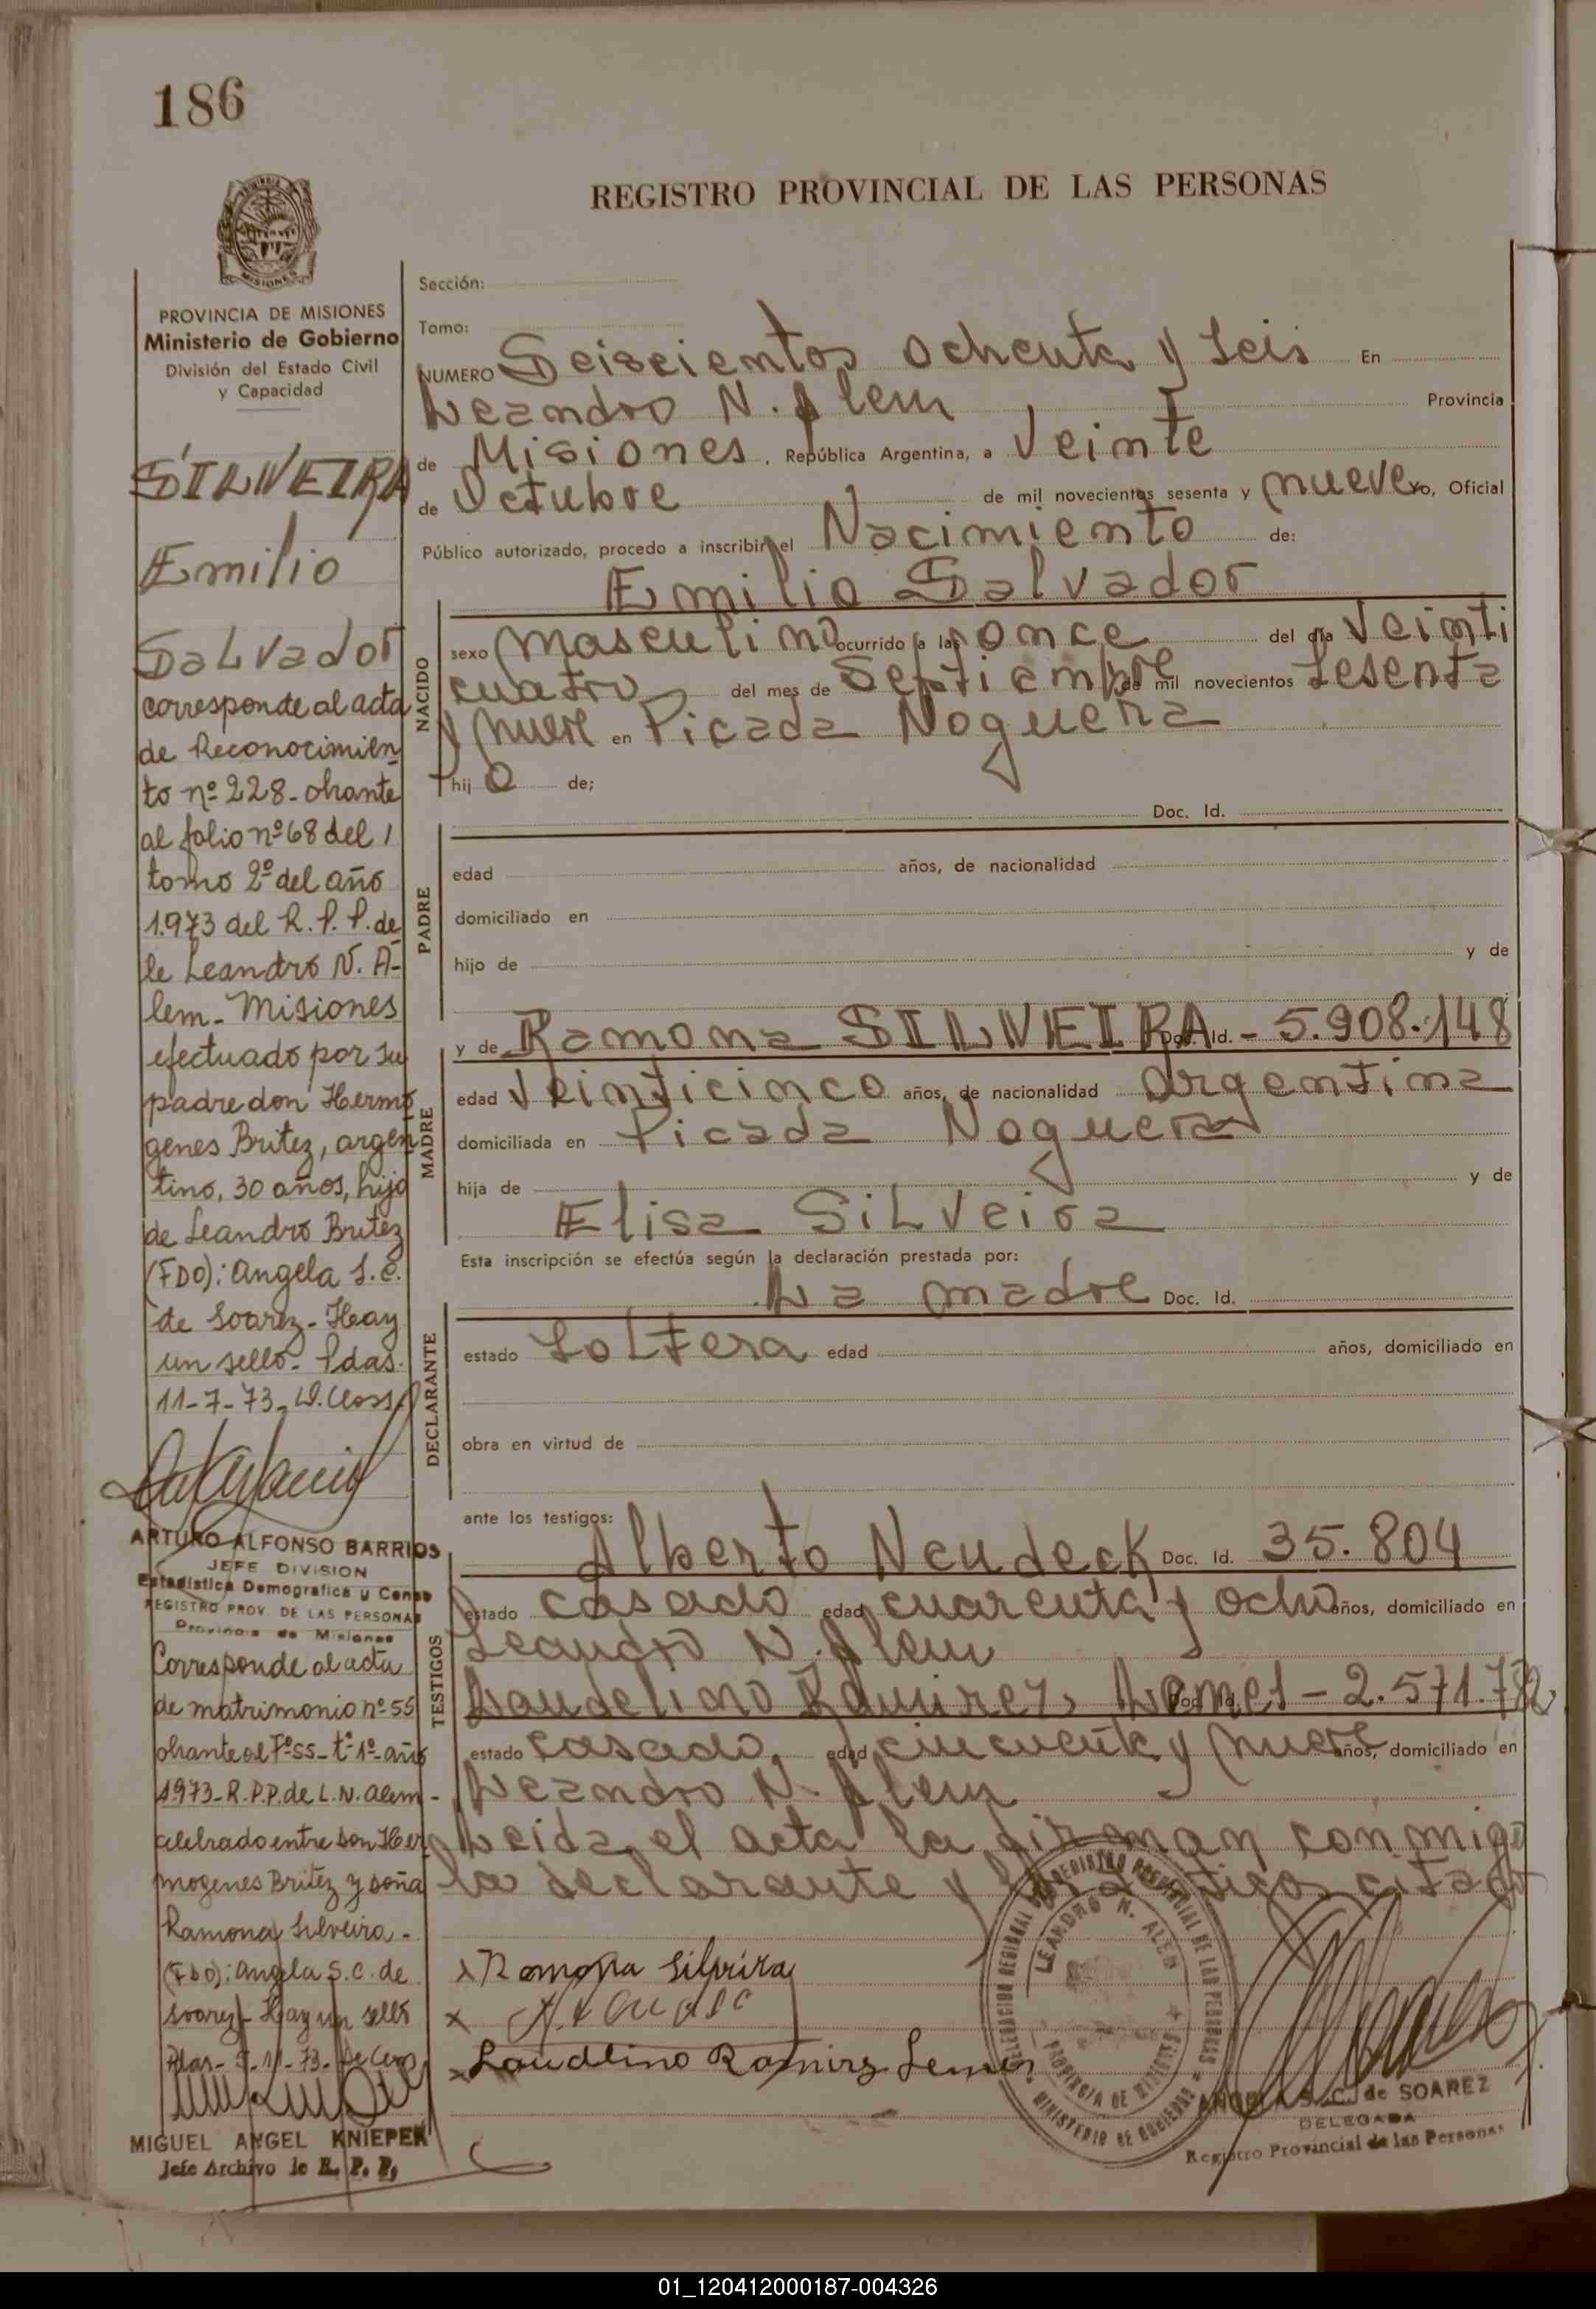 186
REGISTRO PROVINCIAL DE LAS PERSONAS
MISIONES
PROVINCIA DE MISIONES
Ministerio de Gobierno
División del Estado Civil
y Capacidad
SILVEIRA
Emilio
Salvador
corresponde al acta
de Reconocimien
to nº 228 - obrante
al folio nº 68 del
tomo 2º del año
1.973 del R. P. P. de
le Leandro N. A-
lem - Misiones
efectuado por su
padre don Hermó
genes Britez, argen
tino, 30 años, hijo
de Leandro Britez
(FDO): Angela S. C.
de Soarez - Hay
un sello - Pdas.
11-7-73 -
ARTURO ALFONSO BARRIOS
JEFE DIVISION
Estadística Demografica y Censo
REGISTRO PROV. DE LAS PERSONAS
Provincia de Misiones
Corresponde al acta
de matrimonio nº 55
obrante al Fº 55 - tº 1º - año
1973 - R.P.P. de L. N. Alem -
celebrado entre don Her
mogenes Britez y doña
Ramona Silveira -
(Fdo): Angela S. C. de
Soarez - Hay un sello
MIGUEL ANGEL KNIEPEK
Jefe Archivo de R. P. P.
Sección:
Tomo:
NUMERO Seiscientos ochenta y seis En
Leandro N. Alem Provincia
de Misiones. República Argentina, a Veinte
de Octubre de mil novecientos sesenta y nueve yo, Oficial
Público autorizado, procedo a inscribir el Nacimiento de:
Emilio Salvador
NACIDO
sexo masculino ocurrido a las once del día Veinti
cuatro del mes de Septiembre de mil novecientos sesenta
y nueve en Picada Noguera
hij o de;
Doc. Id.
PADRE
edad años, de nacionalidad
domiciliado en
hijo de y de
MADRE
y de Ramona SILVEIRA Doc. Id. - 5.908.148
edad Veinticinco años, de nacionalidad argentina
domiciliada en Picada Noguera
hija de y de
Elisa Silveira
Esta inscripción se efectúa según la declaración prestada por:
La madre Doc. Id.
DECLARANTE
estado Soltera edad años, domiciliado en
obra en virtud de
ante los testigos:
Alberto Neudeck Doc. Id. 35.804
TESTIGOS
estado casado edad cuarenta y ocho años, domiciliado en
Leandro N. Alem
Laudelino Ramirez Lemes - 2.571.782
estado casado, edad cincuenta y nueve años, domiciliado en
Leandro N. Alem
Leida el acta la firman conmigo
la declarante y los testigos citados
x Ramona Silveira
x
x Laudelino Ramirez Lemes
DELEGACION REGIONAL DEL REGISTRO PROVINCIAL DE LAS PERSONAS
LEANDRO N. ALEM
PROVINCIA DE MISIONES
MINISTERIO DE GOBIERNO
ANGELA S. C. de SOAREZ
DELEGADA
Registro Provincial de las Personas
01_120412000187-004326